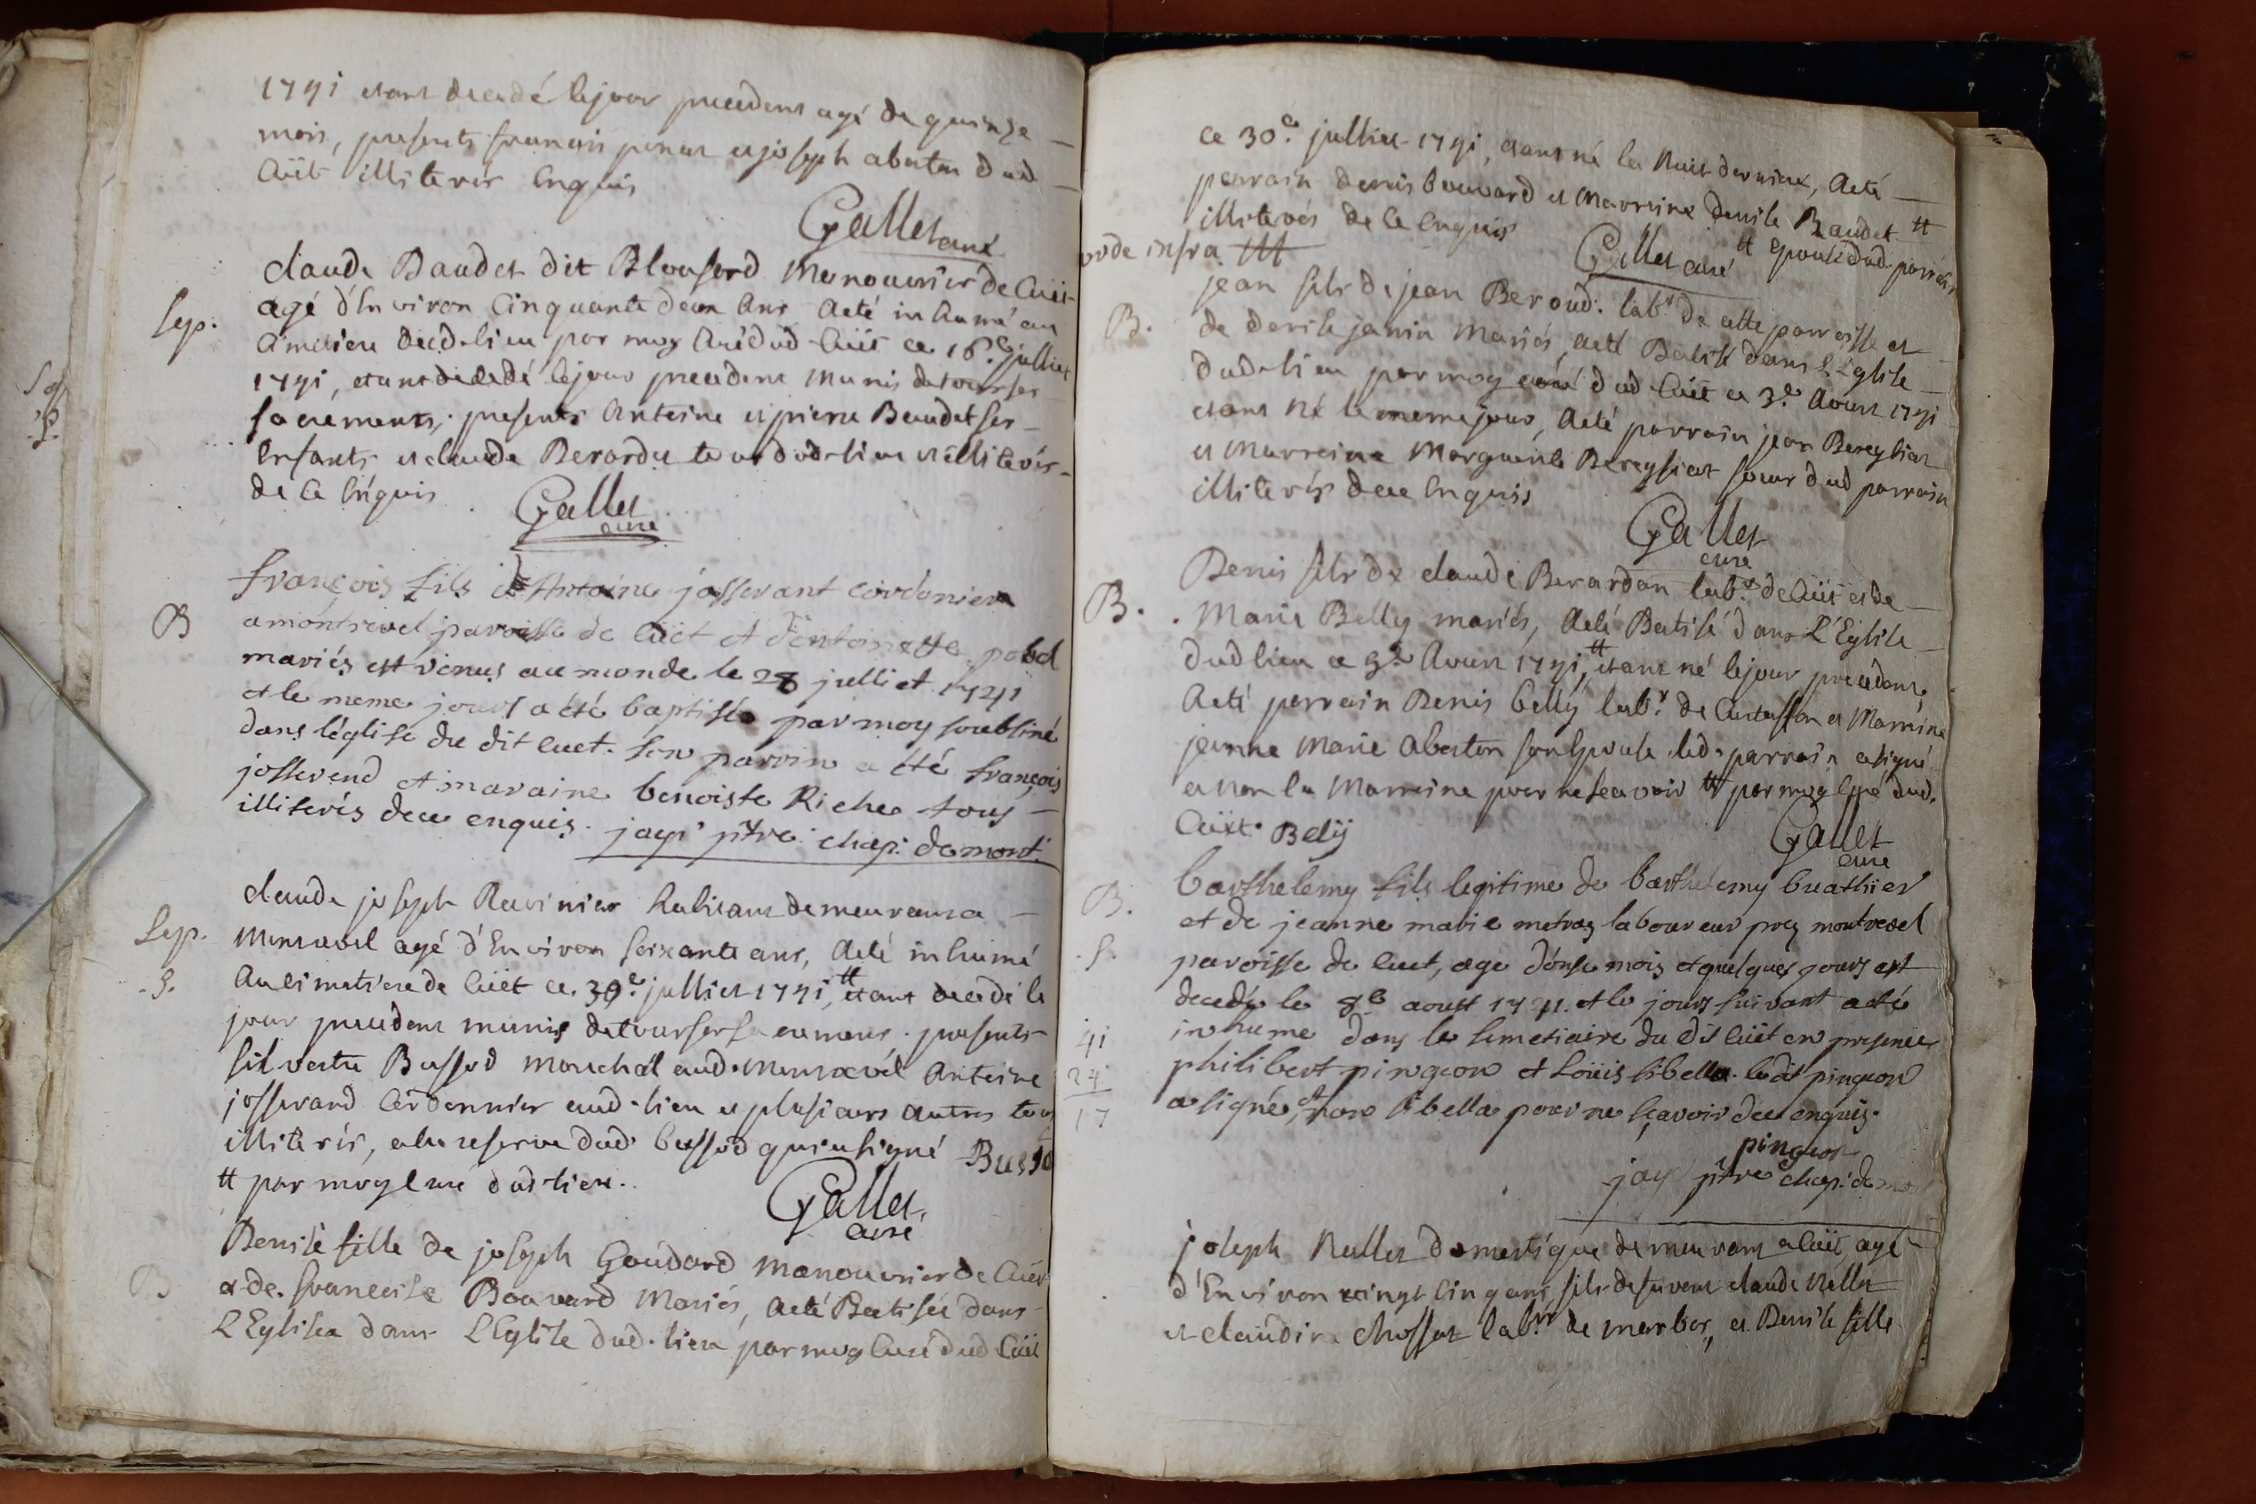 1741 etant decedé le jour precedent agé de quinze
mois, presents francois et joseph aberton dud
Cuët illiterés Enquis
Gallet curé
claude Baudet dit Blonford Manouvrier de Cuët
Sep. agé d'Environ Cinquante deux Ans Acté inhumé au
Cimetiere dud. lieu par moy Curé dud Cuët ce 16e julliet
1741, etant decedé le jour precedent Munis de tous ses
sacrements, presents Antoine et pierre Baudet ses
Enfants et claude Berardet tous dud. lieu illiterés
de ce Enquis
Gallet
curé
françois fils d'Antoine josserant cordonier
B a montrevel paroisse de cüet et d'entoinette pobel
mariés est venus au monde le 28 julliet 1741
et le meme jours a été baptisée par moy soubsiné
dans léglise du dit cuet. son parin a été françois
josserend et maraine benoiste Riche tous
illiterés de ce enquis. jay ptre chap: de mont
claude joseph Ravinier habitant demeurant a
Sep. Montrevel agé d'Environ soixante ans, Acté inhumé
.S. Au Cimetiere de Cüet ce 30e julliet 1741, # etant decedé le
jour precedent munis de tous ses sacremens. presents
silvestre Bussod Marechal aud. Montrevél Antoine
josserand Cordonnier aud. lieu et plusieurs autres tous
illiterés, a la reserve dud. bussod qui a signé Busso
# par moy Curé dud. lieu.
Gallet,
curé
Denise fille de joseph Goudard Manouvrier de Cuët
B & de. francoise Bouvard Mariés, Acté Batisée dans
L'Eglisea dans L'Eglise dud. lieu par moy Curé dud Cüet
ce 30e. julliet 1741, etant né la Nuit derniere, Acté
parrain denis bouvard et Marreine denise Baudet #
illiterés de ce Enquis # Epouse dud. parrain
Gallet curé
vide infra ###
jean fils de jean Beroud. labr. de cette parroisse et
B. de denise janin Mariés, Acté Batisé dans L'Eglise
dud. lieu par moy curé dud Cüet ce 3e. Aoust 1741
etant Né le meme jour, Acté parrain jean Bereyziat
et Marreine Marguerite Bereysiat soeur dud parrain
illiterés de ce Enquis
Gallet
curé
Denis fils de claude Berardan labr. de Cüet et de
B. Marie Belly mariés, Acté Batisé dans L'Eglise
dud lieu ce 5e Aoust 1741, # etant né le jour precedent
Acté parrain Denis belly labr. de Curtafon et Marreine
jeanne Marie Aberton son Epouse led. parrain a signé
et non la Marreine pour ne scavoir # par moy Curé dud.
Cüet. Belÿ
Gallet
curé
B. barthelemy fils legitime de barthelemy buathier
et de jeanne marie metraz laboureur pres montrevel
.S. paroisse de cuet, age d'onse mois et quelques jours est
decedé le 8e aoust 1741. et le jours suivant acté
41 inhume dans le simetiaire du dit cüet en presence
24 philibert pingeon et Loüis libella. ledit pingeon
17 a signé, et non libella pour ne sçavoir de ce enquis.
pingeon
jay ptre chap: de mo
joseph Rullet domestique demeurant a Cüet agé
d'Environ vingt Cinq ans, fils de furent claude Rullet
et claudine chossat labrs de marboz, et Denise fille